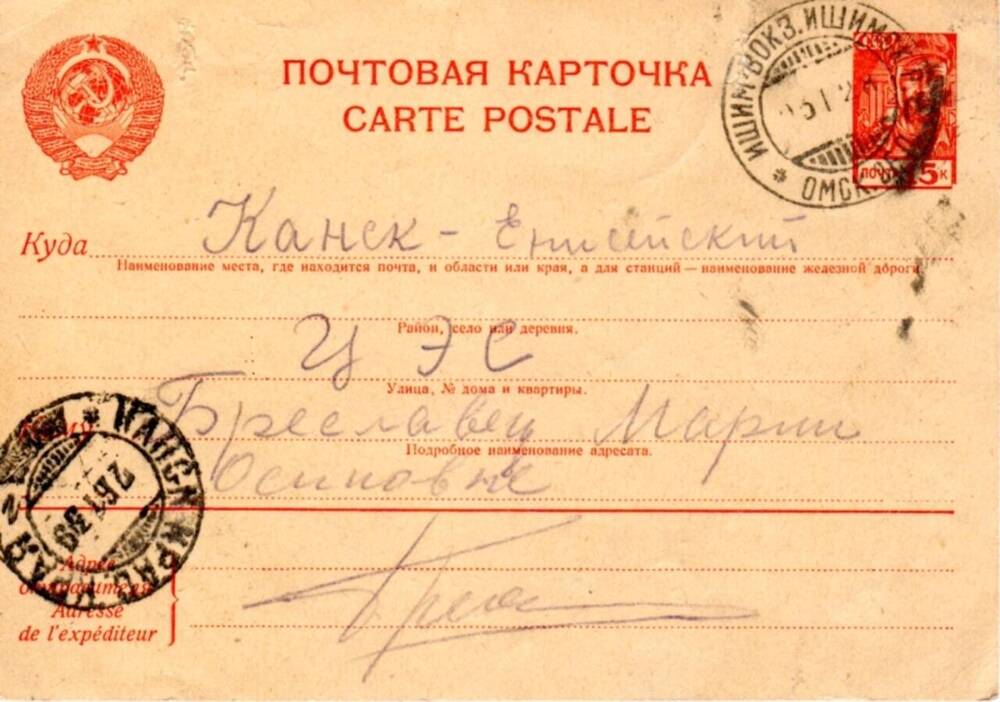 ПОЧТОВАЯ КАРТОЧКА
CARTE POSTALE
ИШИМ-ВОКЗ. ИШИМСК
ОМСК
ПОЧТА 15 К
Куда Канск - Енисейский
Наименование места, где находится почта, и области или края, а для станций — наименование железной дороги
Район, село или деревня.
ЦЭС
Улица, № дома и квартиры.
Кому Бреславец Марии
Подробное наименование адресата.
Осиповне
КАНСК КРАСН. КРАЯ
26 1 39
Адрес
отправителя
Adresse
de l'expéditeur